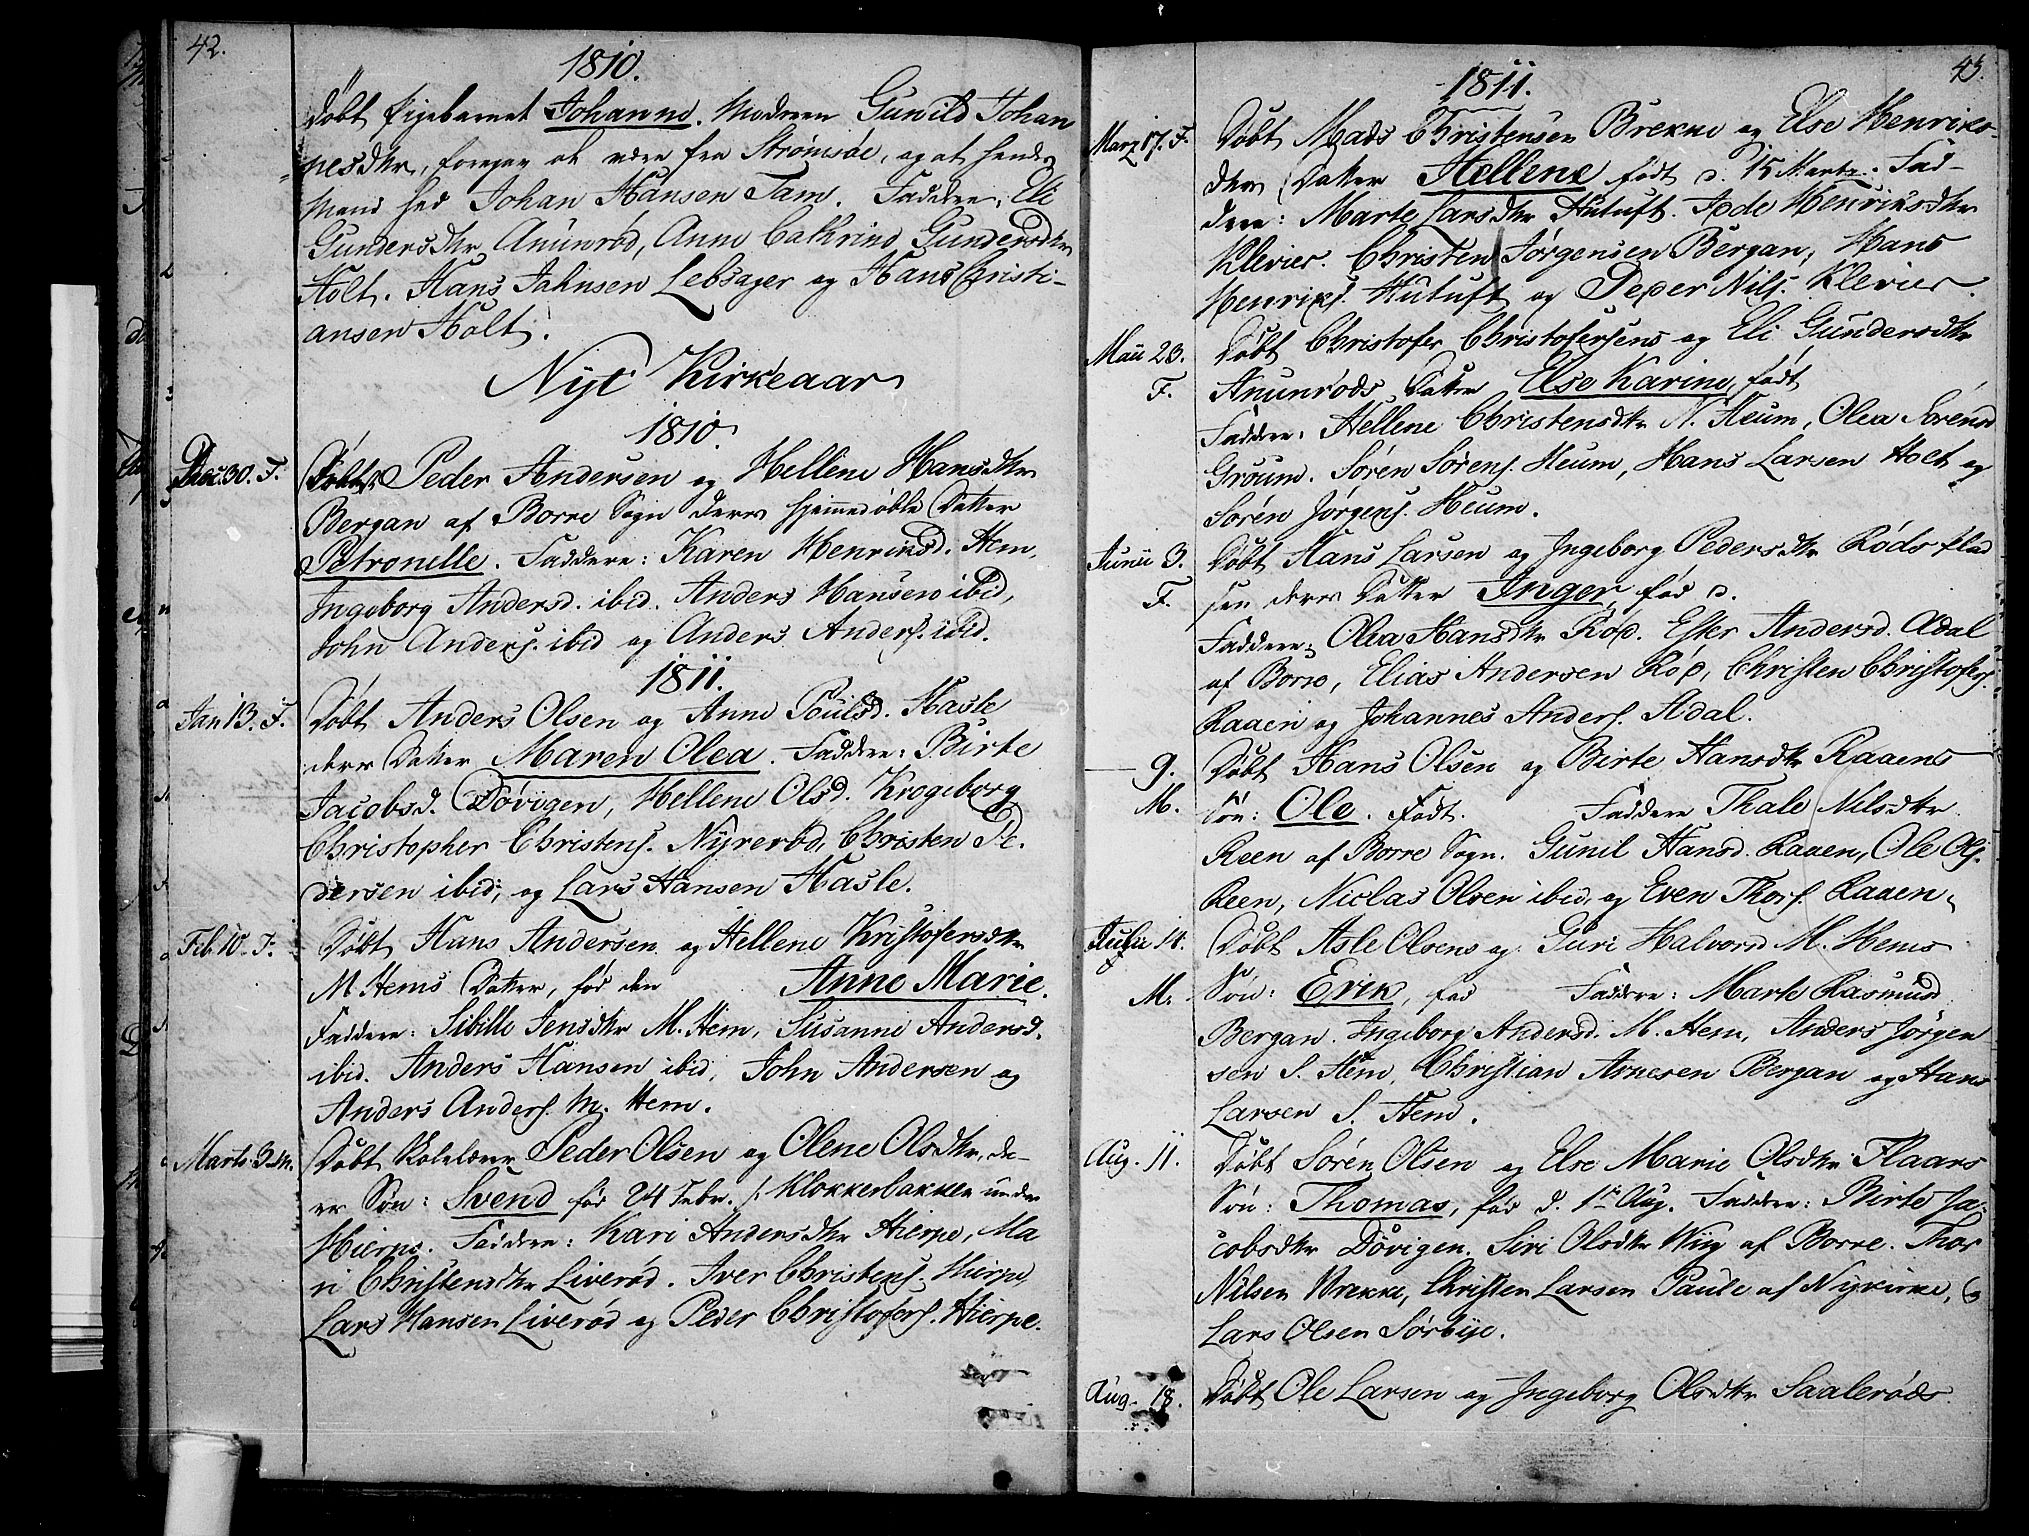 42.
1810.
Døbt Pigebarnet Johanne. Moderen Gunild Johan
nesdtr, foregav at være fra Strømsøe, og at hendes
Mand hed Johan Hansen Tam. Faddere: Eli
Gundersdtr Anunrød, Anne Cathrine Gundersdtr
Holt. Hans Jahnsen Lebsager og Hans Christi-
ansen Holt.
Nyt Kirkeaar
1810.
Dec. 30. F. Døbt Peder Andersen og Hellene Hansdtr
Bergan af Borre Sogn deres hjemmedøbte Datter
Petronelle. Faddere: Karen Henriksd. Hem,
Ingeborg Andersd. ibid. Anders Hansen ibid,
John Anders. ibid og Anders Anders. ibid.
1811.
Jan 13. F. Døbt Anders Olsen og Anne Poulsd. Hasle
deres Datter Maren Olea. Faddere: Birte
Jacobsd. Døvigen, Hellene Olsd. Krogeborg
Christopher Christens. Nyrerød, Christen Pe-
dersen ibid; og Lars Hansen Hasle.
Feb. 10. F. Døbt Hans Andersen og Hellene Kristofersdtr
M. Hems Datter, fød den Anne Marie.
Faddere: Sibille Jensdtr M. Hem, Susanne Andersd.
ibid. Anders Hansen ibid, John Andersen og
Anders Anders. M. Hem.
Marts 3. M. Døbt Skolelærer Peder Olsen og Olene Olsdtr, de-
res Søn: Svend fød 24 Febr. Klokkerbakken under
Hierpe. Faddere: Kari Andersdtr Hierpe, Ma
ri Christensdtr Liverød. Iver Christens. Hierpe,
Lars Hansen Liverød og Peder Christofers. Hierpe.
43.
1811.
Marz 17. F. Døbt Mads Christensen Brekke og Else Henriks-
dtrs Datter Hellene født d. 15 Martz. Fad-
dere: Marte Larsdtr Hutuft. Henriksdtr
Klevier. Christen Jørgensen Bergan, Hans
Henriks. Hutuft og Peder Nils. Klevier.
Maii 23. Døbt Christofer Christofersens og Eli Gundersdtr
F. Anunrøds Datter Else Karine, født
Faddere: Hellene Christensdtr N. Heum, Olea Sørensd
Grøum. Søren Sørens. Heum, Hans Larsen Holt og
Søren Jørgens. Heum.
Junii 3. Døbt Hans Larsen og Ingeborg Pedersdtr Røds
F. deres Datter Inger, fød d.
Faddere: Olea Hansdtr Rød. Ester Andersd. Adal
af Borre, Elias Andersen Rød, Christen Christofers.
Raaen og Johannes Anders. Adal.
— 9. Døbt Hans Olsen og Birte Hansdtr Raaens
M. Søn: Ole. Født. Faddere Thale Nilsdtr
Reen af Borre Sogn. Gunil Hansd. Raaen, Ole Ols.
Reen, Niclas Olsen ibid, og Even Thors. Raaen.
Julii 14. Døbt Asle Olsens og Guri Halvorsd M. Hems
M. Søn: Erik, fød Faddere: Marte Rasmusd
Bergan. Ingeborg Andersd. M. Hem, Anders Jørgen
sen S. Hem, Christian Arnesen Bergan og Hans
Larsen S. Hem.
Aug. 11. Døbt Søren Olsen og Else Marie Olsdtr Flaars
Søn: Thomas, fød d. 1te Aug. Faddere: Birte Ja-
cobsdtr Døvigen. Siri Olsdtr Wiig af Borre. Thor
Nilsen Brekke, Christen Larsen Paule af Nykirke, og
Lars Olsen Sørbye.
Aug. 18. Døbt Ole Larsen og Ingeborg Olsdtr Saalerøds